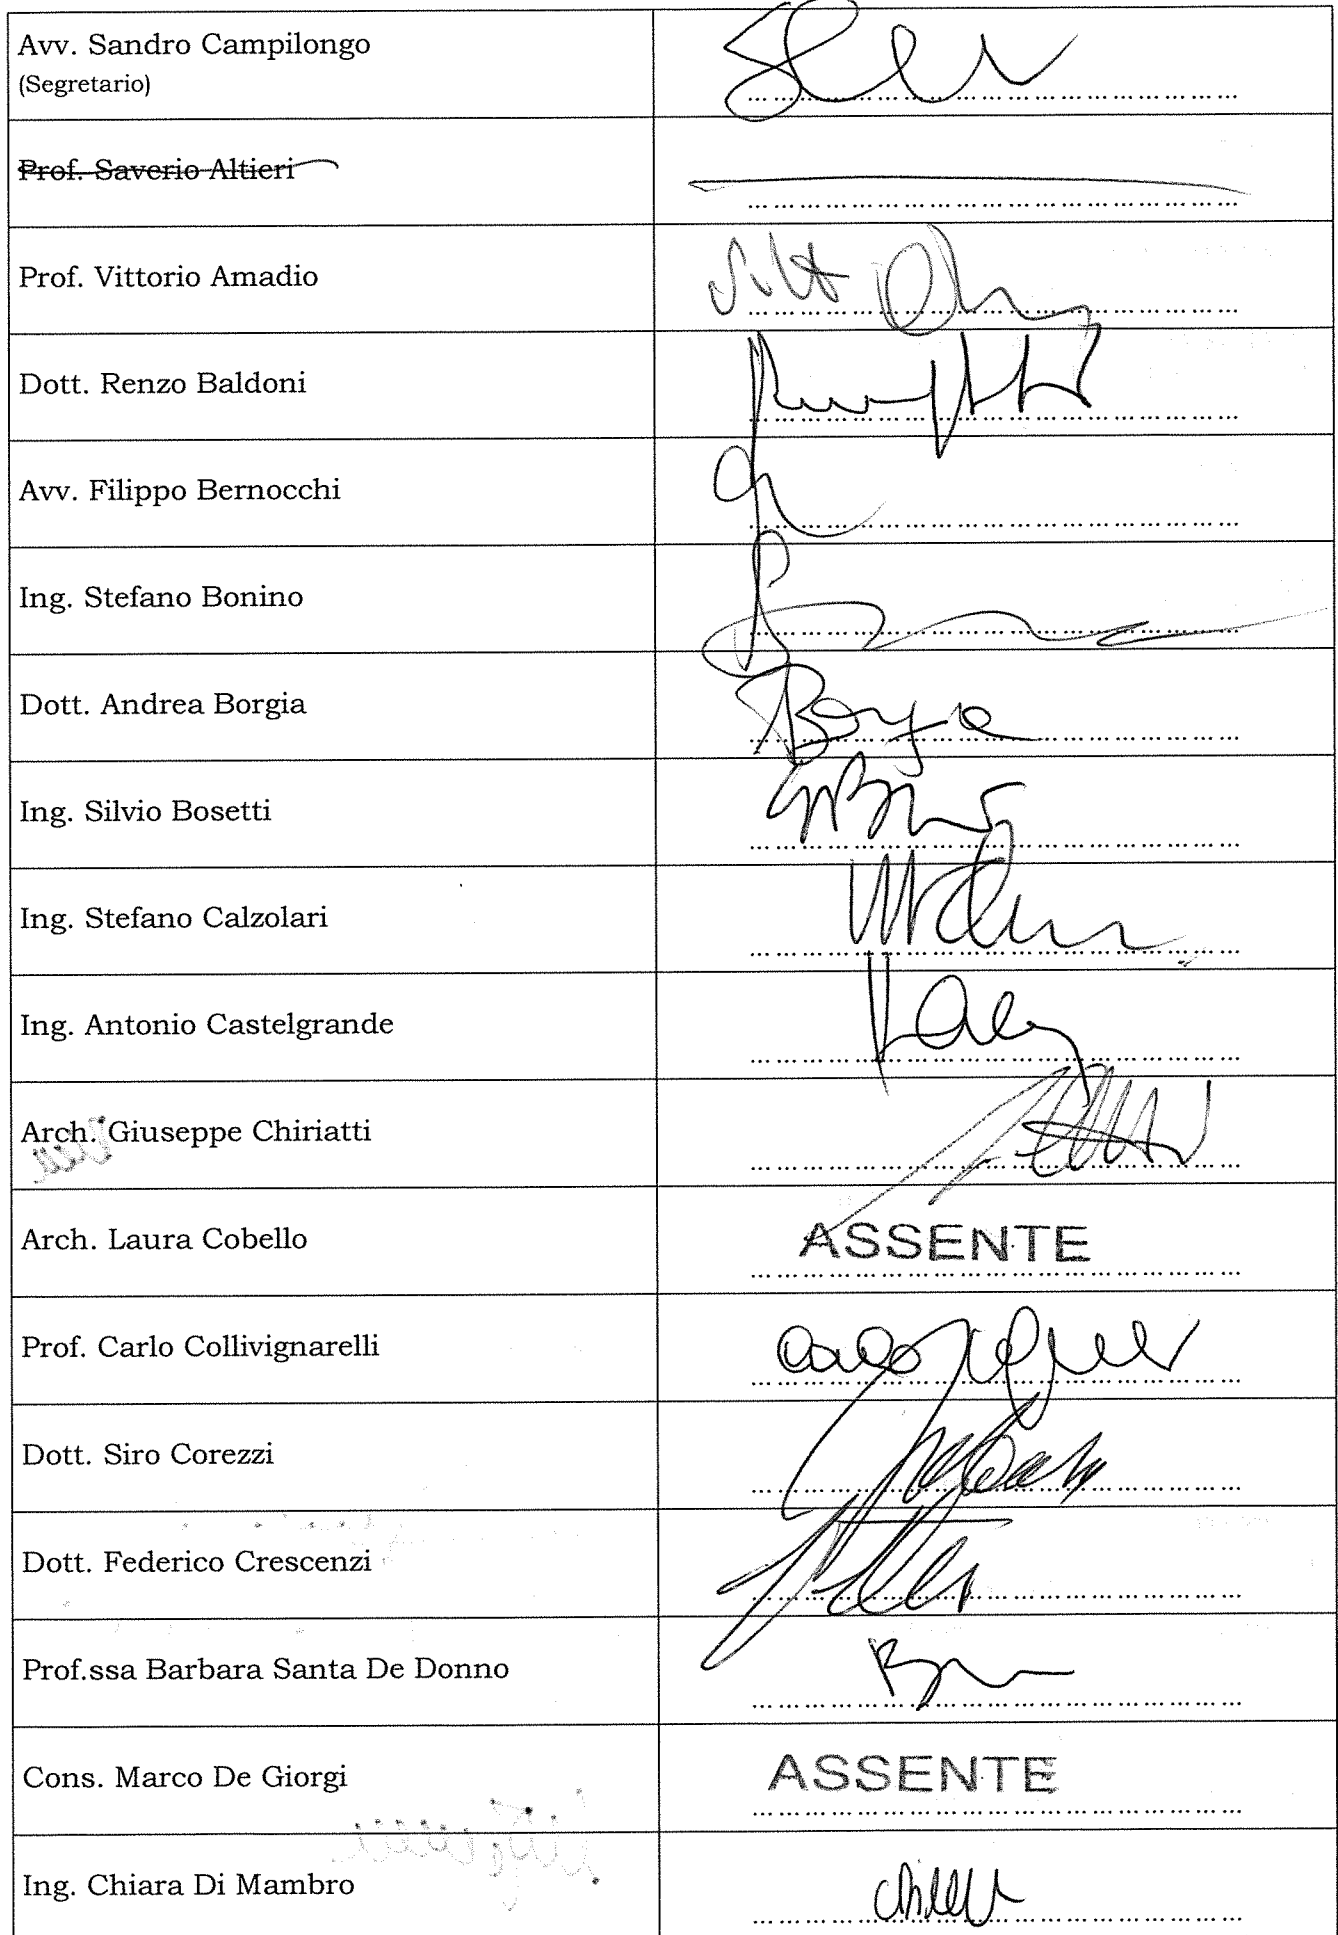 Avv. Sandro Campilongo
(Segretario)
Prof. Saverio Altieri
Prof. Vittorio Amadio
Dott. Renzo Baldoni
Avv. Filippo Bernocchi
Ing. Stefano Bonino
Dott. Andrea Borgia
Borgia
Ing. Silvio Bosetti
Ing. Stefano Calzolari
Ing. Antonio Castelgrande
Arch. Giuseppe Chiriatti
Arch. Laura Cobello
ASSENTE
Prof. Carlo Collivignarelli
Dott. Siro Corezzi
Dott. Federico Crescenzi
Prof.ssa Barbara Santa De Donno
Cons. Marco De Giorgi
ASSENTE
Ing. Chiara Di Mambro